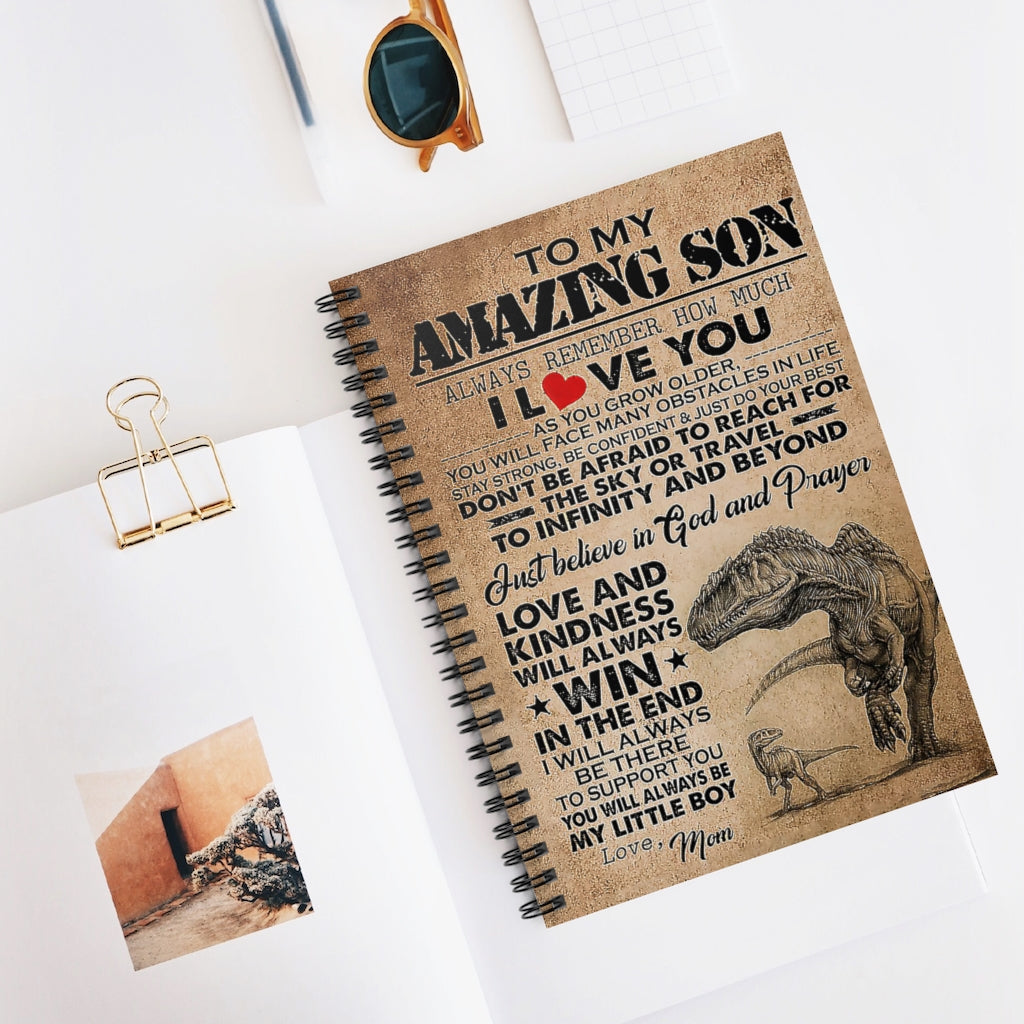 TO MY
AMAZING SON
ALWAYS REMEMBER HOW MUCH
I LOVE YOU
AS YOU GROW OLDER,
YOU WILL FACE MANY OBSTACLES IN LIFE
STAY STRONG, BE CONFIDENT & JUST DO YOUR BEST
DON'T BE AFRAID TO REACH FOR
THE SKY OR TRAVEL
TO INFINITY AND BEYOND
Just believe in God and Prayer
LOVE AND
KINDNESS
WILL ALWAYS
WIN
IN THE END
I WILL ALWAYS
BE THERE
TO SUPPORT YOU
YOU WILL ALWAYS BE
MY LITTLE BOY
Love, Mom